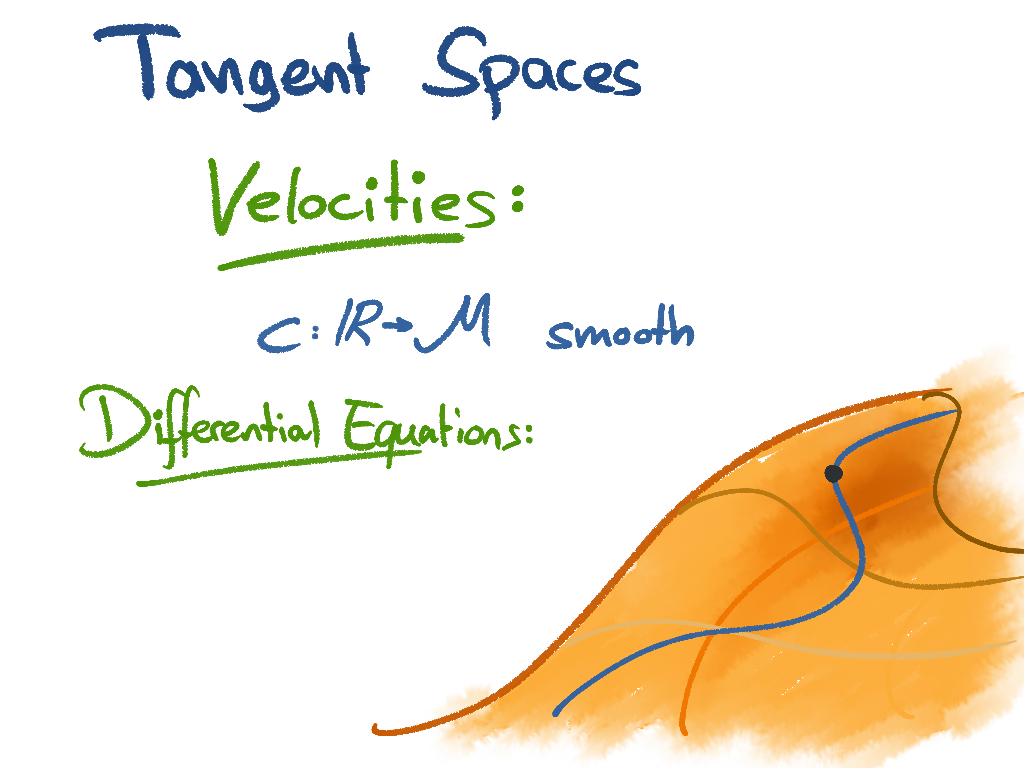 Tangent Spaces
Velocities:
c: ℝ → M smooth
Differential Equations: